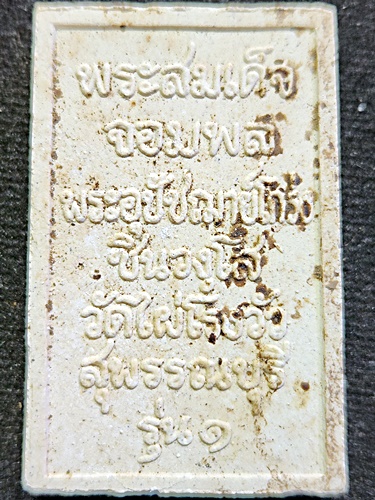 พระสมเด็จ
จอมพล
พระอุปัชฌาย์โกวิ
ชินวงฺโส
วัดไผ่โรงวัว
สุพรรณบุรี
รุ่น ๑